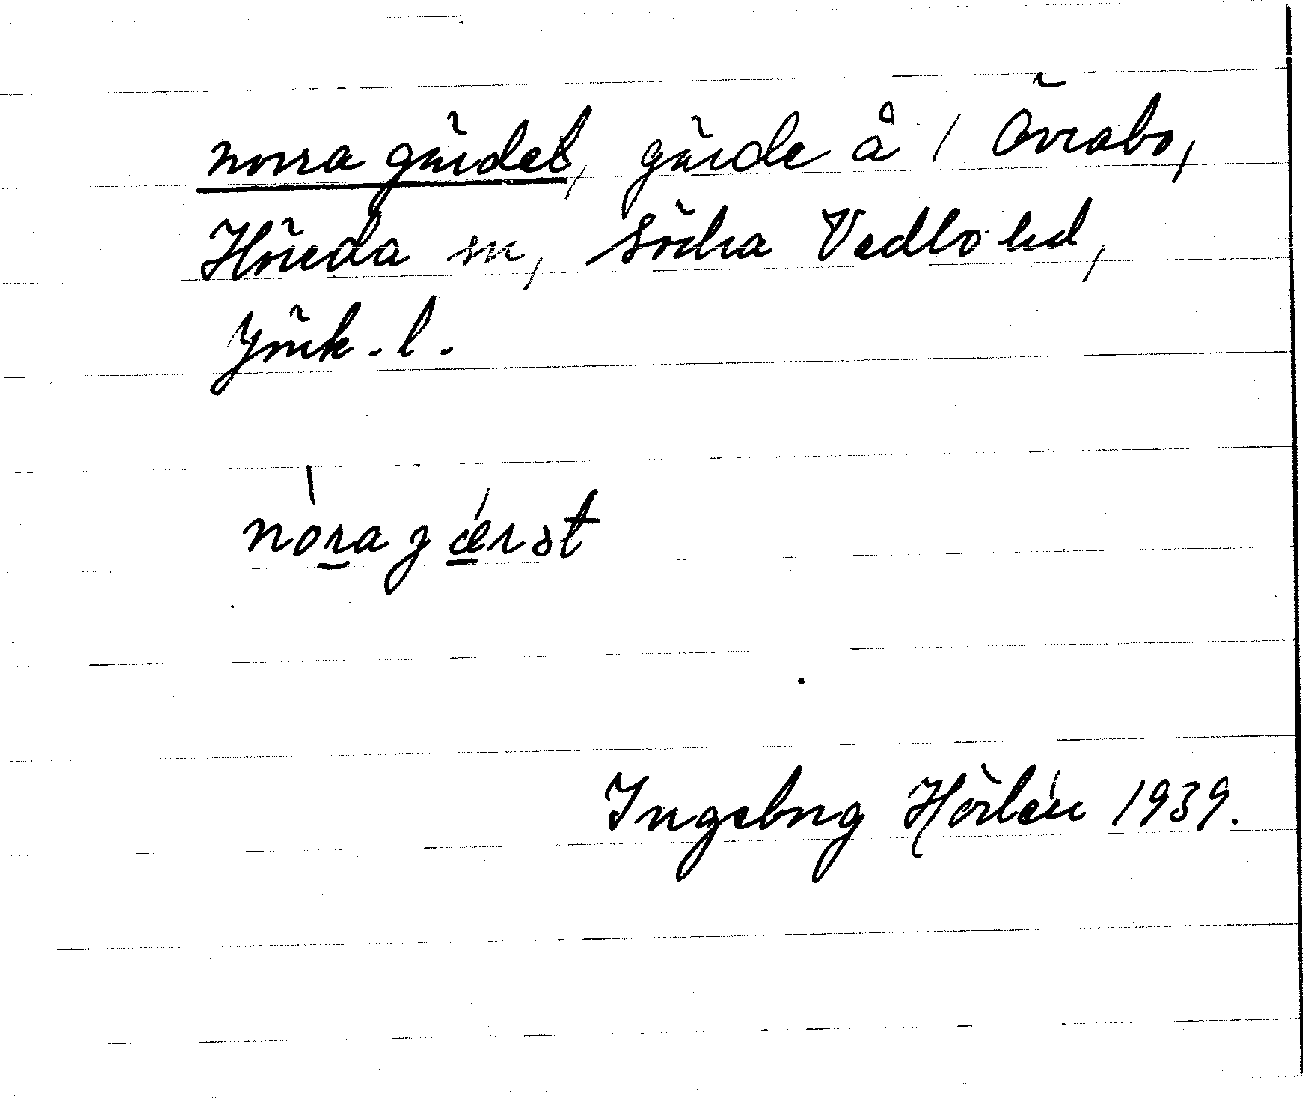 norra gärdet, gärde å 1 Övrabo,
Höreda sn, Södra Vedbo hd,
Jönk. l.
nòragǽrət
Ingeborg Hörlén 1939.